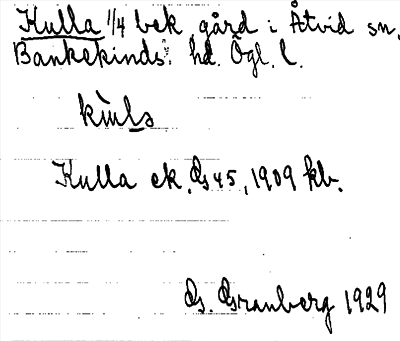 Kulla 1/4 bek. gård i Åtvid sn.
Bankekinds hd. Ögl. l.
Kulla ek. Gs 45, 1909 kb.
G. Granberg 1929